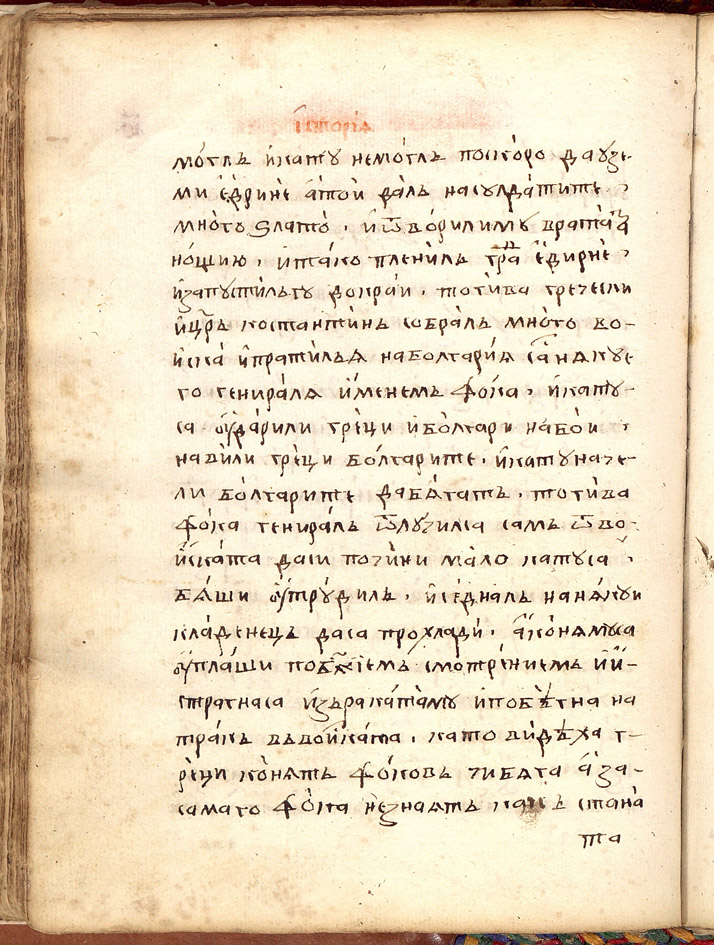 їсторіа
мо́глъ и҆като̀ немо́глъ поско́ро даузе-
ми е҆дринѐ а҆то́й далъ насулда́тите
мно́го ѕлато̀, и҆ѿво́рилиму̀ врата̀та
но́щию, и҆та́ко плени́лъ гра́дъ е҆дирнѐ
и҆запусти́лъгу докра́и, тоги́ва гре́чески
и҆ца́ръ костанти́нъ собра́лъ мно́го во-
йска̀ и҆прати́лъꙗ наболга́риꙗ са́ня́кое-
го генира́ла и҆менемъ фо́ка, и҆кату̀-
са ᲂу҆да́рили гре́ци и҆бо́лгари на́бои
нави́ли гре́ци бо́лгарите, и҆катуначе-
ли бо́лгарите дабѧ́гатъ, тоги́ва
фо́ка генира́лъ ѿлучи́лса самъ ѿво-
йска́та даси почи́ни ма́ло катуса
бѧ́ши ᲂу҆тру́дилъ, и҆се́дналъ наня́куи
кла́денецъ даса прохладѝ, а҆ко́нямуса
ᲂу҆пла́ши побж҃іемъ смотре́нїемъ и҆и҆-
стра́гнаса и҆зърака́таму̀ и҆побѣ́гна на
тра́къ въвойска́та, като ви́дѣха г-
ре́ци ко́нятъ фо́ковъ чибѧ́га а҆за-
само́го фо́ка незна́ятъ какъ̀ стана̀
та